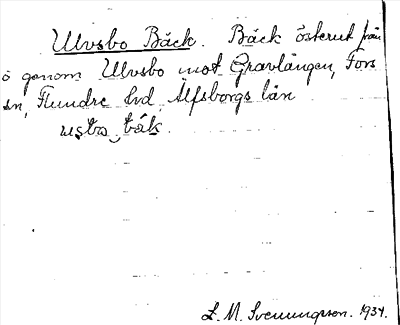 Ulvsbo Bäck. Bäck österut från
ö genom Ulvsbo mot Gravlången, Fors
sn, Flundre hd Älfsborgs län
ustbo bäk.
L. M. Svenungsson. 1934.